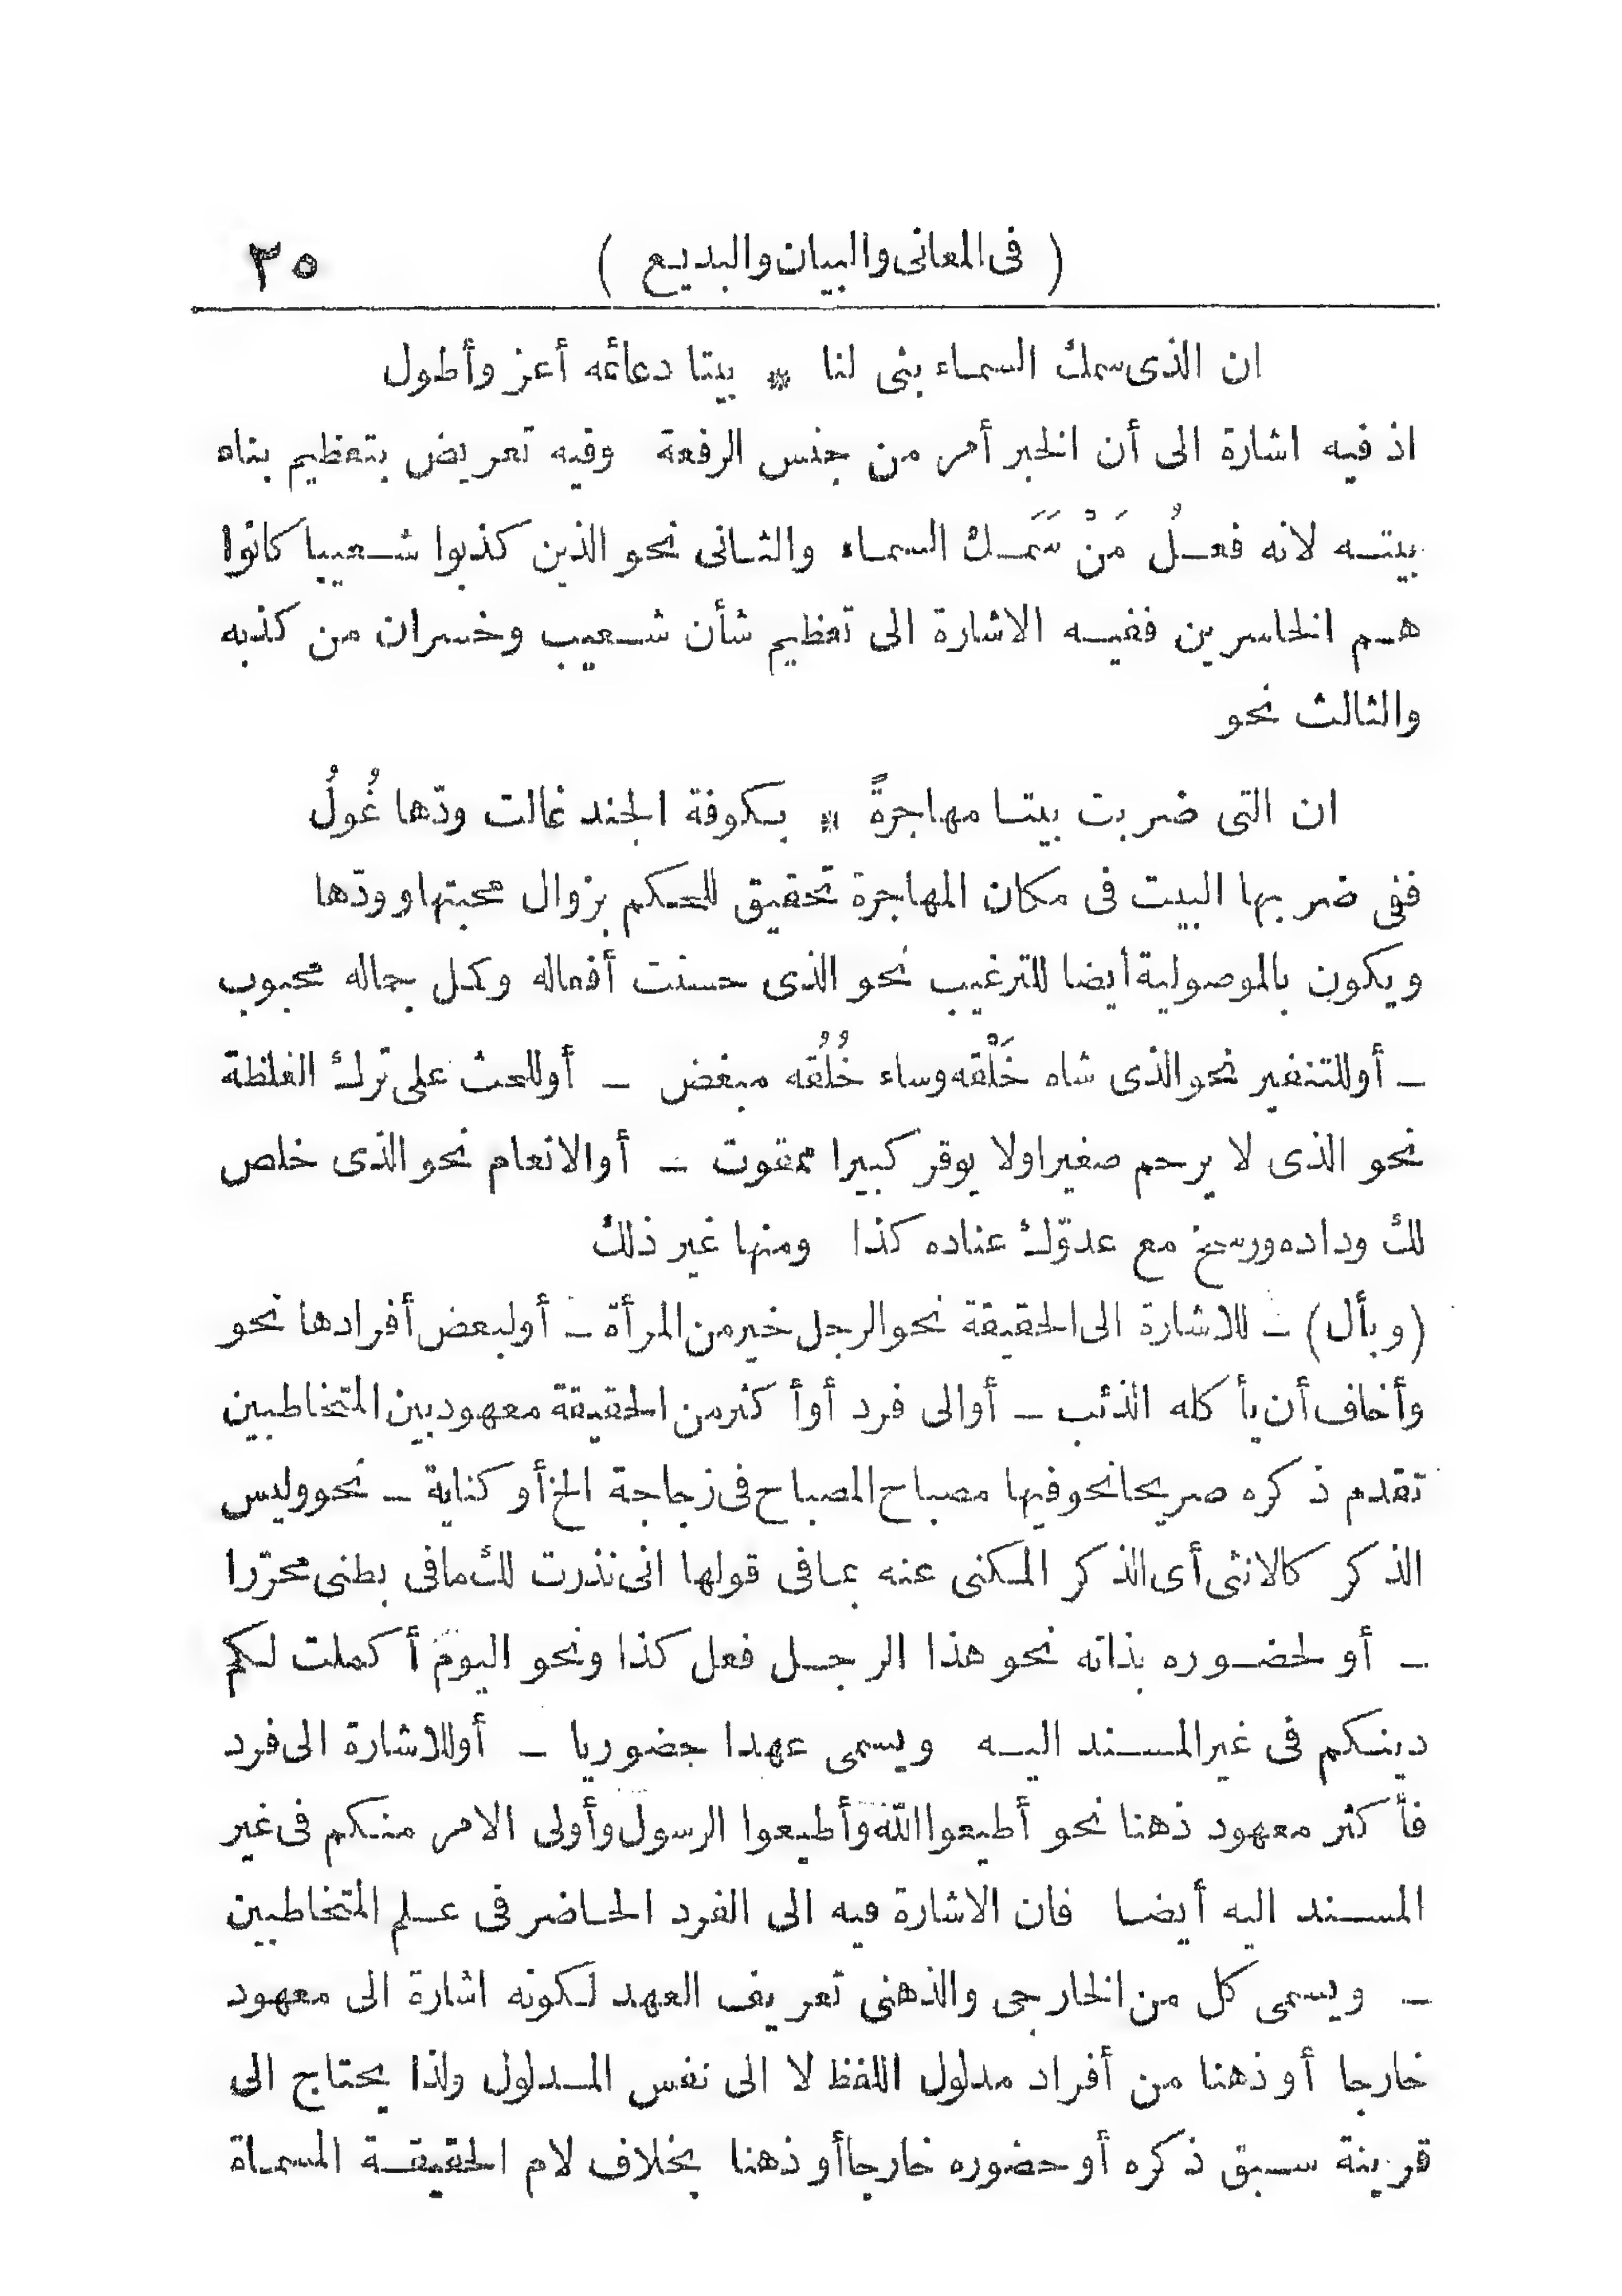 ( فى المعانى والبيان والبديع ) ٣٥
ان الذى سمك السماء بنى لنا * بيتا دعائمه أعز وأطول
اذ فيه اشارة الى أن الخبر أمر من جنس الرفعة وفيه تعريض بتعظيم بناء
بيتــه لانه فعــلُ مَنْ سَمَــك السماء والثــانى نحو الذين كذبوا شــعيبا كانوا
هــم الخاسرين ففيــه الاشارة الى تعظيم شأن شــعيب وخسران من كذبه
والثالث نحو
ان التى ضربت بيتــا مهاجرةً * بكوفة الجند غالت ودّها غُولُ
ففى ضربها البيت فى مكان المهاجرة تحقيق للحكم بزوال محبتها وودّها
ويكون بالموصولية أيضا للترغيب نحو الذى حسنت أفعاله وكمل جماله محبوب
ــ أو للتنفير نحو الذى شاه خَلْقه وساء خُلُقه مبغض ــ أو للحث على ترك الغلظة
نحو الذى لا يرحم صغيرا ولا يوقر كبيرا ممقوت ــ أو الانعام نحو الذى خلص
لك وداده ورسخ مع عدوّك عناده كذا ومنها غير ذلك
(وبأل) ــ للاشارة الى الحقيقة نحو الرجل خير من المرأة ــ أو لبعض أفرادها نحو
وأخاف أن يأكله الذئب ــ أو الى فرد أو أكثر من الحقيقة معهود بين المتخاطبين
تقدم ذكره صريحا نحو فيها مصباح المصباح فى زجاجة الخ أو كناية ــ نحو وليس
الذكر كالانثى أى الذكر المكنى عنه بما فى قولها انى نذرت لك ما فى بطنى محرّرا
ــ أو لحضــوره بذاته نحو هذا الرجــل فعل كذا ونحو اليوم أكملت لكم
دينــكم فى غير المســند اليــه ويسمى عهدا حضوريا ــ أو للاشارة الى فرد
فأكثر معهود ذهنا نحو أطيعوا الله وأطيعوا الرسول وأولى الامر منــكم فى غير
المســند اليه أيضــا فان الاشارة فيه الى الفرد الحــاضر فى عــلم المتخاطبين
ــ ويسمى كل من الخارجى والذهنى تعريف العهد لــكونه اشارة الى معهود
خارجا أو ذهنا من أفراد مدلول اللفظ لا الى نفس المــدلول ولذا يحتاج الى
قرينة ســبق ذكره أو حضوره خارجا أو ذهنا بخلاف لام الحقيقــة المسماة